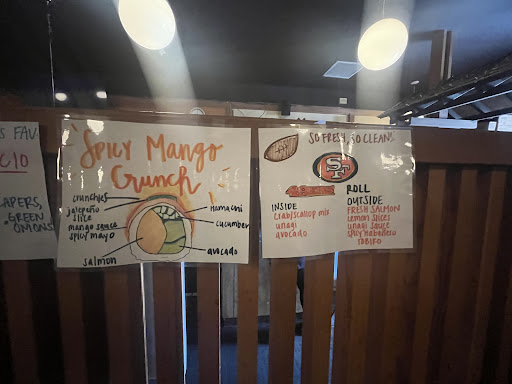 S FAV
CIO
APERS,
GREEN
ONIONS
Spicy Mango
Crunch
crunchies
jalepeño
slice
mango sauce
spicy mayo
salmon
Hamachi
cucumber
avocado
SO FRESH, SO CLEAN
SF
49ers ROLL
INSIDE
crab/scallop mix
unagi
avocado
OUTSIDE
FRESH SALMON
lemon slices
unagi sauce
spicy habañero
TOBIKO